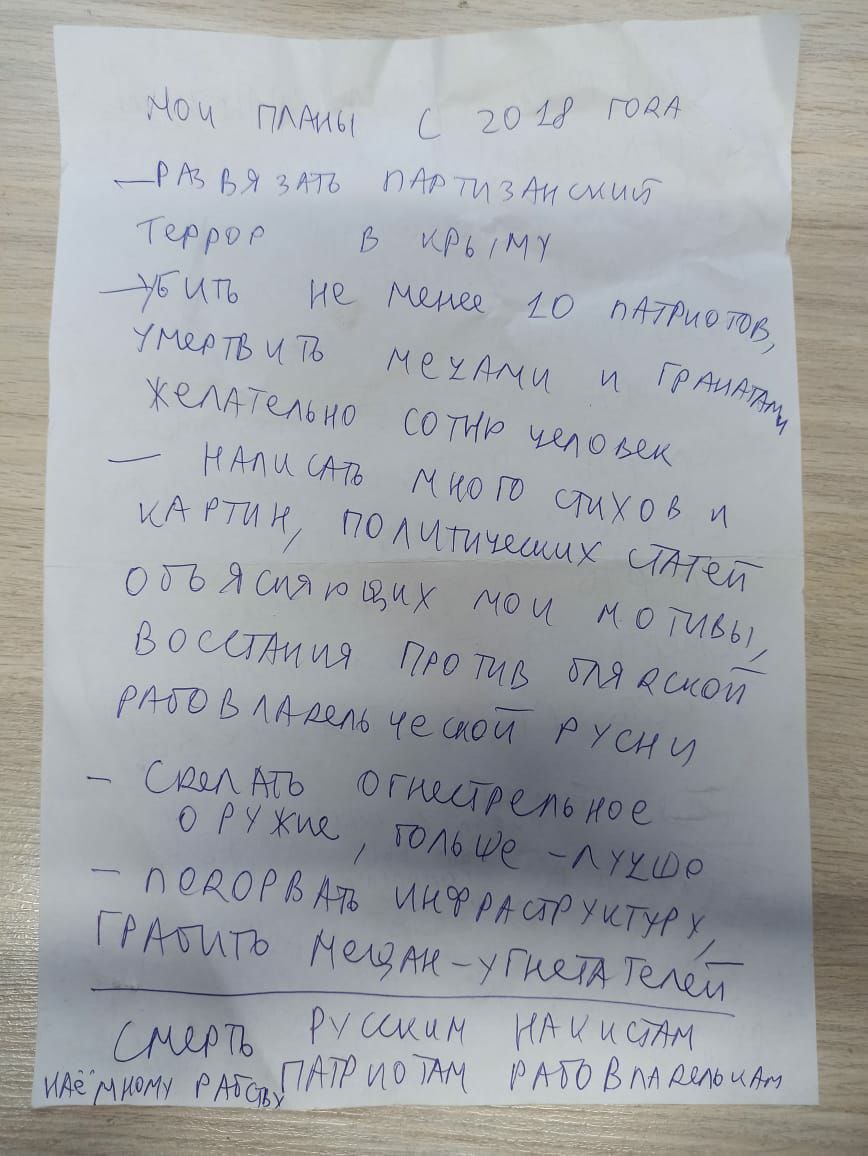 МОИ ПЛАНЫ С 2018 ГОДА
— РАЗВЯЗАТЬ ПАРТИЗАНСКИЙ
ТЕРРОР В КРЫМУ
— УБИТЬ НЕ МЕНЕЕ 10 ПАТРИОТОВ,
УМЕРТВИТЬ МЕЧАМИ И ГРАНАТАМИ
ЖЕЛАТЕЛЬНО СОТНЮ ЧЕЛОВЕК
— НАПИСАТЬ МНОГО СТИХОВ И
КАРТИН, ПОЛИТИЧЕСКИХ СТАТЕЙ
ОБЪЯСНЯЮЩИХ МОИ МОТИВЫ,
ВОССТАНИЯ ПРОТИВ БЛЯДСКОЙ
РАБОВЛАДЕЛЬЧЕСКОЙ РУСНИ
— СДЕЛАТЬ ОГНЕСТРЕЛЬНОЕ
ОРУЖИЕ, БОЛЬШЕ – ЛУЧШЕ
— ПОДОРВАТЬ ИНФРАСТРУКТУРУ,
ГРАБИТЬ МЕЩАН – УГНЕТАТЕЛЕЙ
СМЕРТЬ РУССКИМ НАЦИСТАМ
НАЁМНОМУ РАБСТВУ ПАТРИОТАМ РАБОВЛАДЕЛЬЦАМ